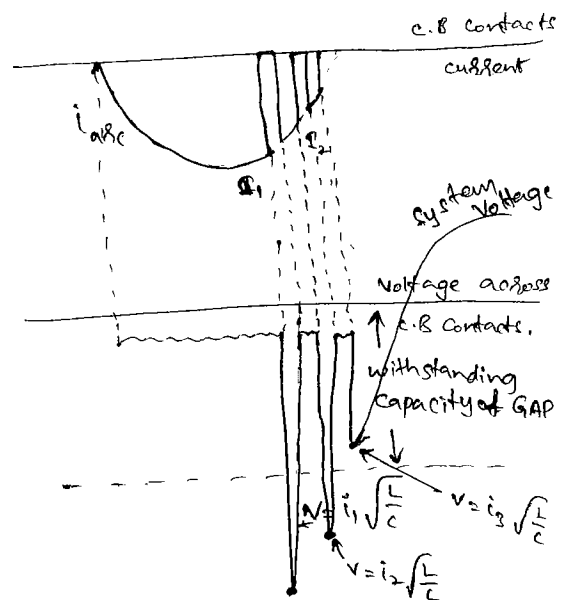 C.B contacts
current
i arc
I₁
I₂
System
voltage
Voltage across
C.B Contacts.
withstanding
capacity of GAP
V= i₁ √L/C
V= i₂ √L/C
V= i₃ √L/C